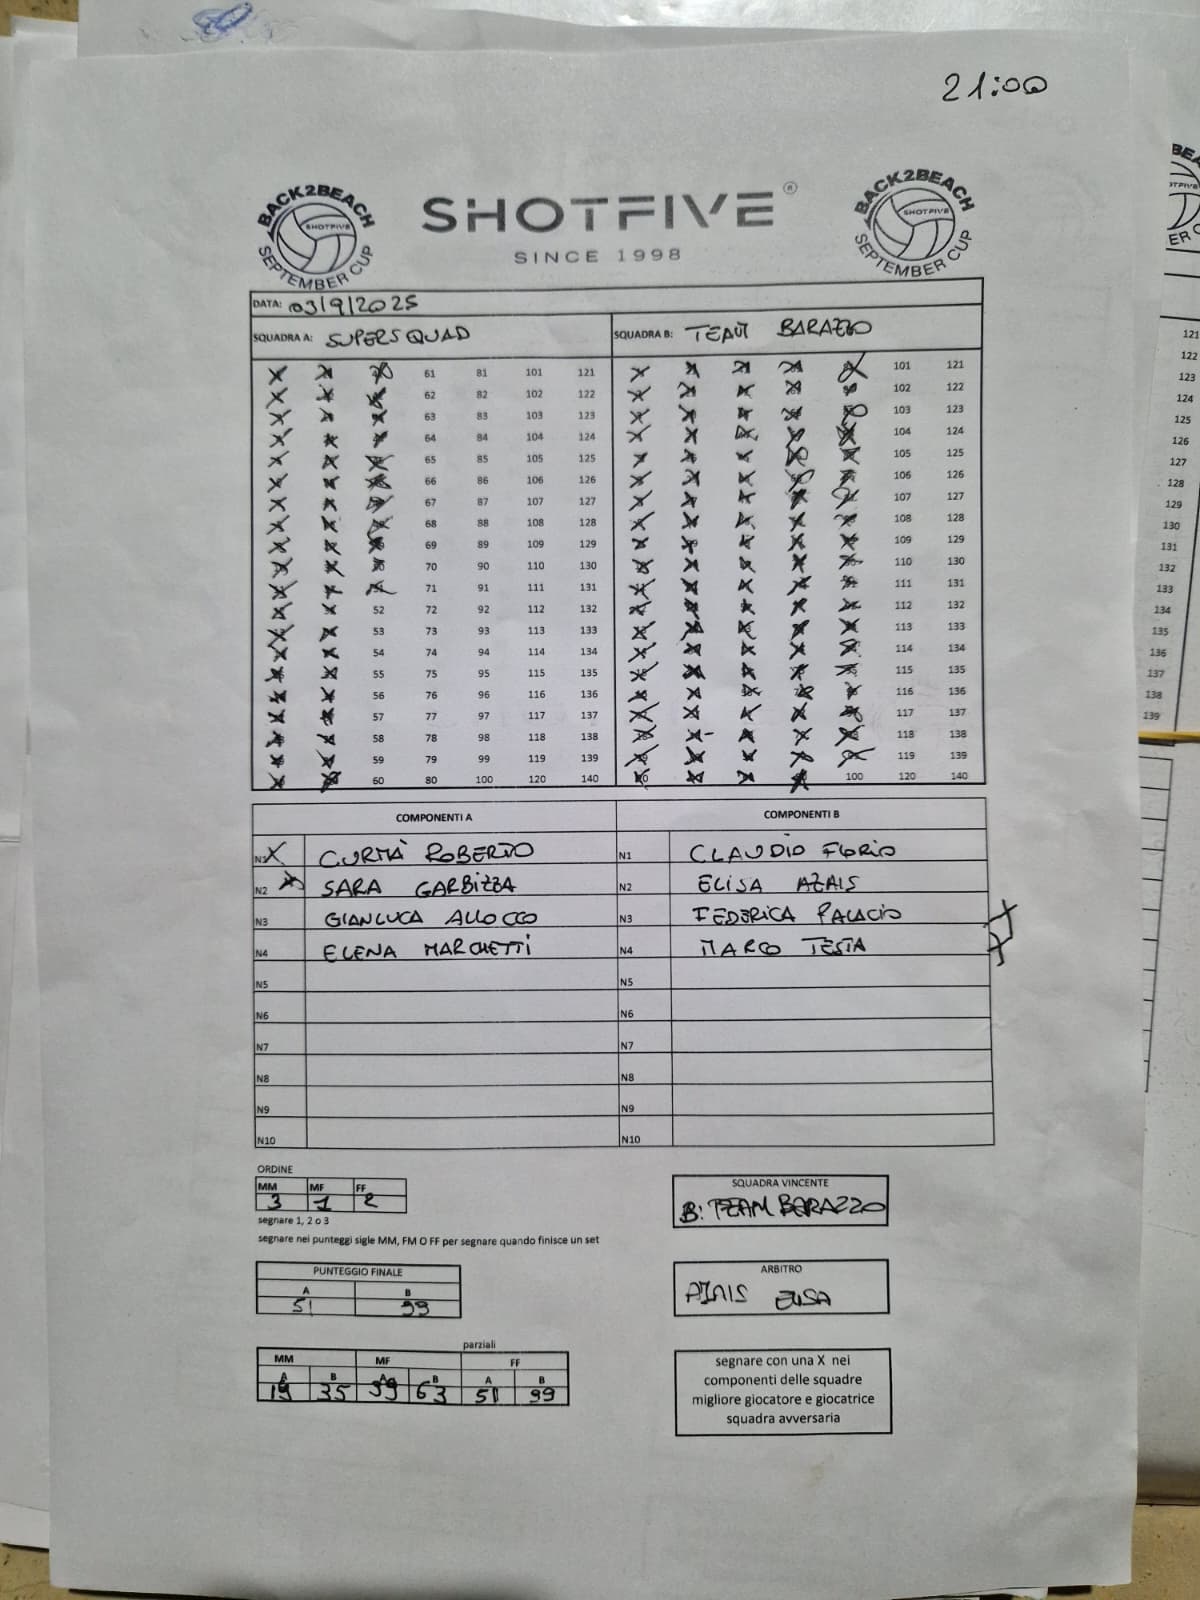 21:00
BACK2BEACH SHOTFIVE SEPTEMBER CUP
SHOTFIVE®
SINCE 1998
BACK2BEACH SHOTFIVE SEPTEMBER CUP
DATA: 03/9/2025
SQUADRA A: SUPERSQUAD SQUADRA B: TEAM BARAZZO
61 81 101 121 101 121
62 82 102 122 102 122
63 83 103 123 103 123
64 84 104 124 104 124
65 85 105 125 105 125
66 86 106 126 106 126
67 87 107 127 107 127
68 88 108 128 108 128
69 89 109 129 109 129
70 90 110 130 110 130
71 91 111 131 111 131
52 72 92 112 132 112 132
53 73 93 113 133 113 133
54 74 94 114 134 114 134
55 75 95 115 135 115 135
56 76 96 116 136 116 136
57 77 97 117 137 117 137
58 78 98 118 138 118 138
59 79 99 119 139 119 139
60 80 100 120 140 100 120 140
COMPONENTI A COMPONENTI B
N1 X CURMÀ ROBERTO N1 CLAUDIO FLORIO
N2 X SARA GARBIZZA N2 ELISA AZAIS
N3 GIANLUCA ALLOCCO N3 FEDERICA PALACIO X
N4 ELENA MARCHETTI N4 MARCO TESTA X
N5 N5
N6 N6
N7 N7
N8 N8
N9 N9
N10 N10
ORDINE
MM MF FF
3 1 2
segnare 1, 2 o 3
segnare nei punteggi sigle MM, FM O FF per segnare quando finisce un set
SQUADRA VINCENTE
B: TEAM BARAZZO
PUNTEGGIO FINALE
A B
51 99
ARBITRO
AZAIS ELISA
parziali
MM MF FF
A B A B A B
19 35 39 63 51 99
segnare con una X nei
componenti delle squadre
migliore giocatore e giocatrice
squadra avversaria
121
122
123
124
125
126
127
128
129
130
131
132
133
134
135
136
137
138
139